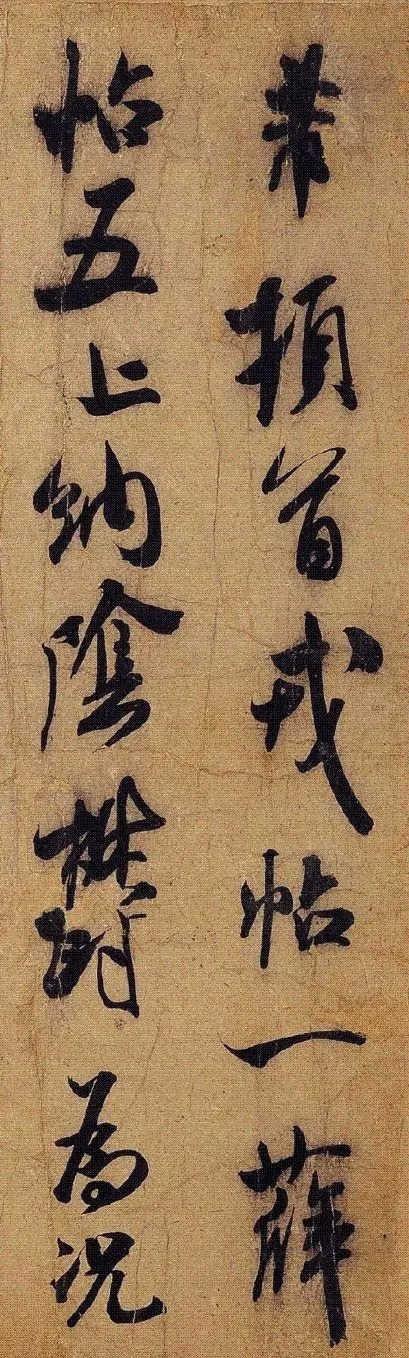 芾頓首戎帖一薛
帖五上納陰鬱為況